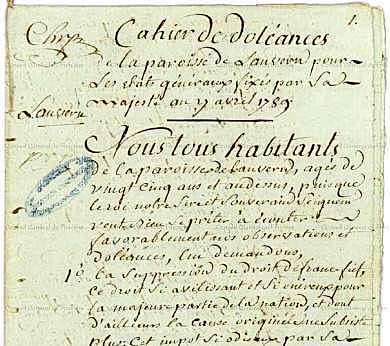 1.
Cahier de doléances
de la paroisse de Lanvern pour
Les etats généraux fixés par Sa
Majesté au 17 avril 1789
Lanvern
Nous tous habitants
de la paroisse de Lanvern, agés de
vingt cinq ans et audessus, puisque
le roi notre Sire et Souverain Seigneur
veut bien se prêter à écouter
favorablement nos observations et
doléances, lui demandons,
1° La suppression du droit de franc-fief,
ce droit si avilissant et si onéreux pour
la majeure partie de la nation, et dont
d'ailleurs la cause originelle ne subsiste
plus. Cet impot si odieux par sa